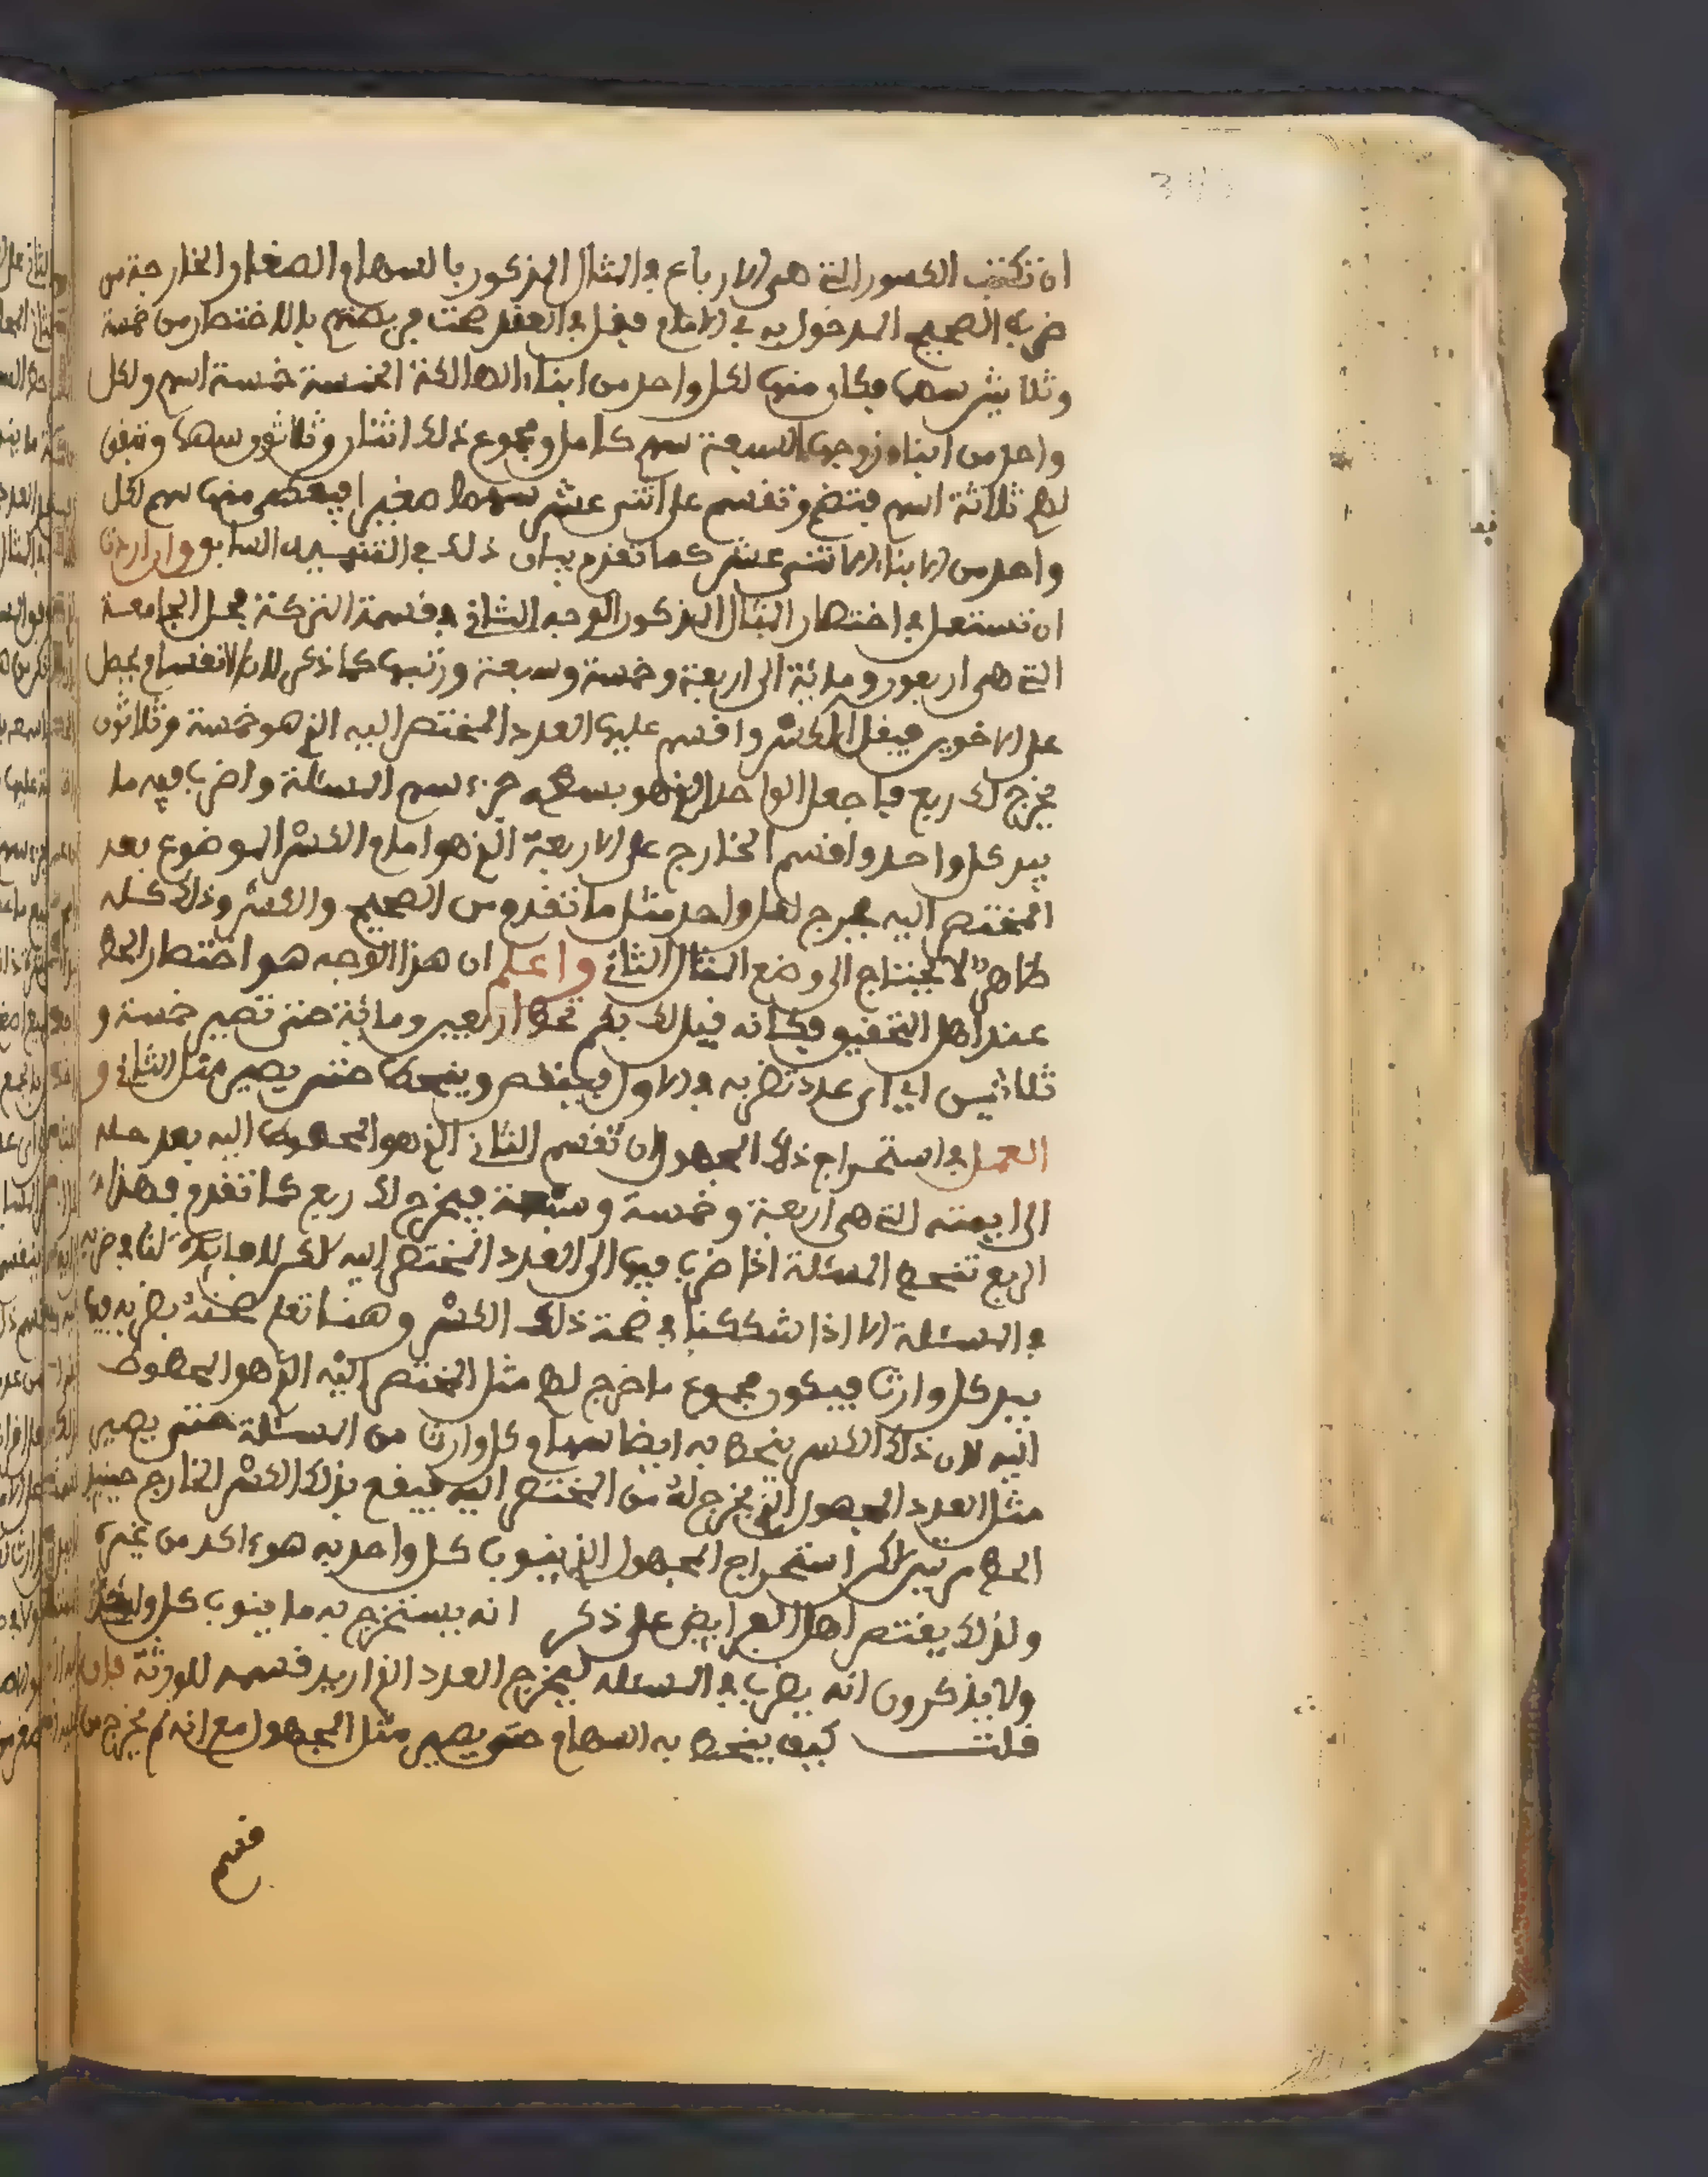 ان تكتب الكسور التي هي الارباع في المثال المذكور بالسهام الصغار والخارجة من
ضرب الصحيح المدخول به في الامام فيقل في العقد صحت فريضتهم بالاختصار من خمسة
وثلاثين سهما فكان منها لكل واحد من ابناء الهالكة الخمسة خمسة اسهم ولكل
واحد من ابناء زوجها السبعة سهم كامل ومجموع ذلك اثنان وثلاثون سهما وتبقى
لهم ثلاثة اسهم فتضع وتقسم على اثنى عشر سهما صغيرا فيعطى منها سهم لكل
واحد من الابناء الاثنى عشر كما تقدم بيان ذلك في التنبيه السابق وان اردت
ان تستعمل في اختصار المثال المذكور الوجه الثاني في قسمة التركة فحل الجامعة
التي هي اربعون ومائة الى اربعة وخمسة وسبعة ورتبها كما ذكر لان الانقسام يحصل
على الاخوين فيقل الكسر واقسم عليها العدد المختصر اليه الذي هو خمسة وثلاثون
يخرج لك ربع فاجعل الواحد الذي هو بسطه جزء سهم المسئلة واضرب فيه ما
بيد كل واحد واقسم الخارج على الاربعة الذي هو امام الكسر الموضوع بعد
المختصر اليه يخرج لكل واحد مثل ما تقدم من الصحيح والكسر وذلك كله
ظاهر لا يحتاج الى وضع المثال الثاني واعلم ان هذا الوجه هو اختصار الحط
عند اهل التحقيق فكانه قيل لك بكم تحط اربعين ومائة حتى تصير خمسة و
ثلاثين اي اي عدد تضربه في الاول فينقص وينحط حتى يصير مثل الثاني و
العمل في استخراج ذلك المجهول ان تقسم الثاني الذي هو المحطوط اليه بعد حله
الى ايمته التي هي اربعة وخمسة وسبعة فيخرج لك ربع كما تقدم فهذا
الربع تنحط المسئلة اذا ضرب فيها الى العدد المختصر اليه لكن لا فايدة لنا في ضربه
في المسئلة الا اذا شككنا في صحة ذلك الكسر وهنا تعلم صحته بضربه فيما
بيد كل وارث فيكون مجموع ما خرج لهم مثل المختصر اليه الذي هو المحطوط
اليه لان ذلك الكسر ينحط به ايضا سهام كل وارث من المسئلة حتى يصير
مثل العدد المجهول الذي يخرج له من المختصر اليه فيقع بذلك الكسر الخارج حينئذ
الحط مرتين لكن استخراج المجهول الذي ينوب كل واحد به هو اكد من غيره
ولذلك يقتصر اهل الفرايض على ذكر انه يستخرج به ما ينوب كل وارث
ولا يذكرون انه يضرب في المسئلة ليخرج العدد الذي اريد قسمه للورثة فان
قلت كيف ينحط به السهام حتى يصير مثل المجهول مع انه لم يخرج من
قسم